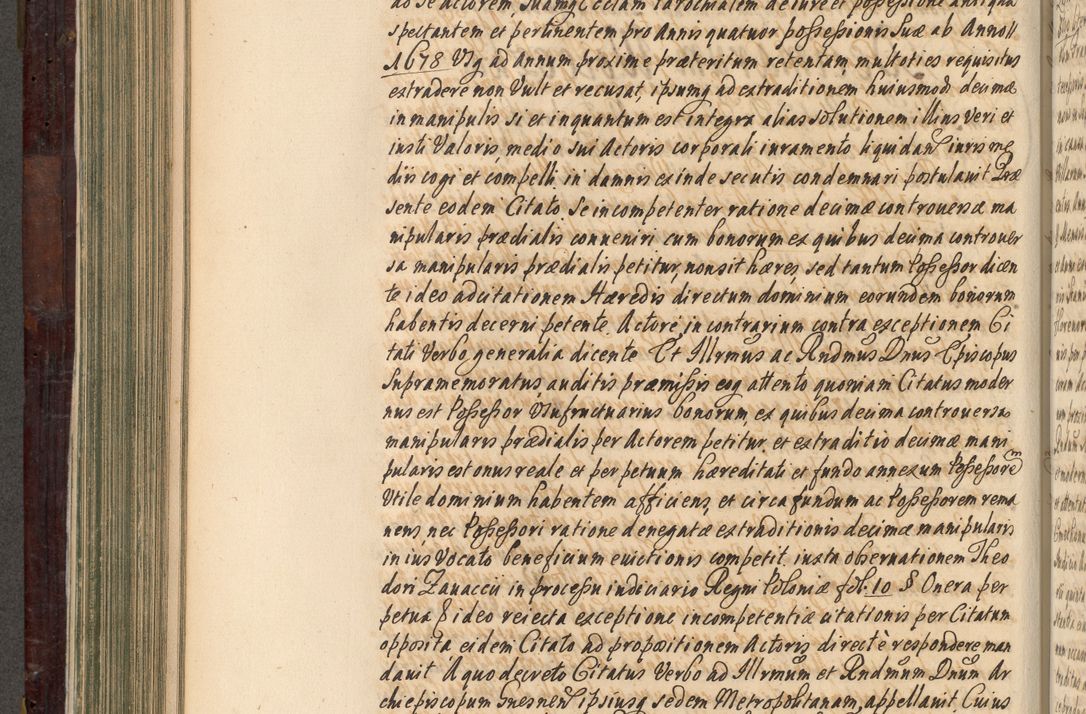 ab se actorem, suamq Ecclam Parochialem de iure et possessione antiqua
spectantem et pertinentem pro Annis quatuor possessionis suæ ab Anno
1678 Vsq ad annum proxime præteritum retentam, multoties requisitus
extradere non Vult et recusat, ipsumq ad extraditionem huiusmodi decimæ
in manipulis si et inquantum est integra alias solutionem illius Veri et
iusti Valoris, medio sui Actoris corporali iuramento liquidan iuris me
diis cogi et compelli in damnis exinde secutis condemnari postulauit Præ
sente eodem Citato se incompetenter ratione decimæ controuersæ ma
nipularis prædialis conueniri cum bonorum ex quibus decima controuer
sa manipularis prædialis petitur, non sit hæres, sed tantum Possessor dicen
te ideo ad citationem Hæredis directum dominium eorundem bonorum
habentis decerni petente. Actore, in contrarium contra exceptionem Ci
tati Verbo generalia dicente Et Illrmus ac Rndmus Dnus Episcopus
supramemoratus, auditis præmissis eoq attento quoniam Citatus moder
nus est Possessor Vsufructuarius bonorum, ex quibus decima controuersa
manipularis prædialis per Actorem petitur, et extraditio decimæ mani
pularis est onus reale et perpetuum hæreditati et fundo annexum Possessorem
Vtile dominium habentem afficiens, et circa fundum ac Possessorem rema
nens nec Possessori ratione denegatæ extraditionis decimæ manipularis
in ius Vocato beneficium euictionis competit iuxta obseruationem Theo
dori Zauaccii in processu iudiciario Regni Poloniæ fol. 10 § Onera per
petua § ideo reiecta exceptione incompetentiæ citationis per Citatum
opposita eidem Citato ad propositionem Actoris directè respondere man
dauit A quo decreto Citatus Verbo ad Illrmum et Rndmum Dnum Ar
chiepiscopum Gnesnen ipsiusq sedem Metropolitanam, appellauit, Cuius